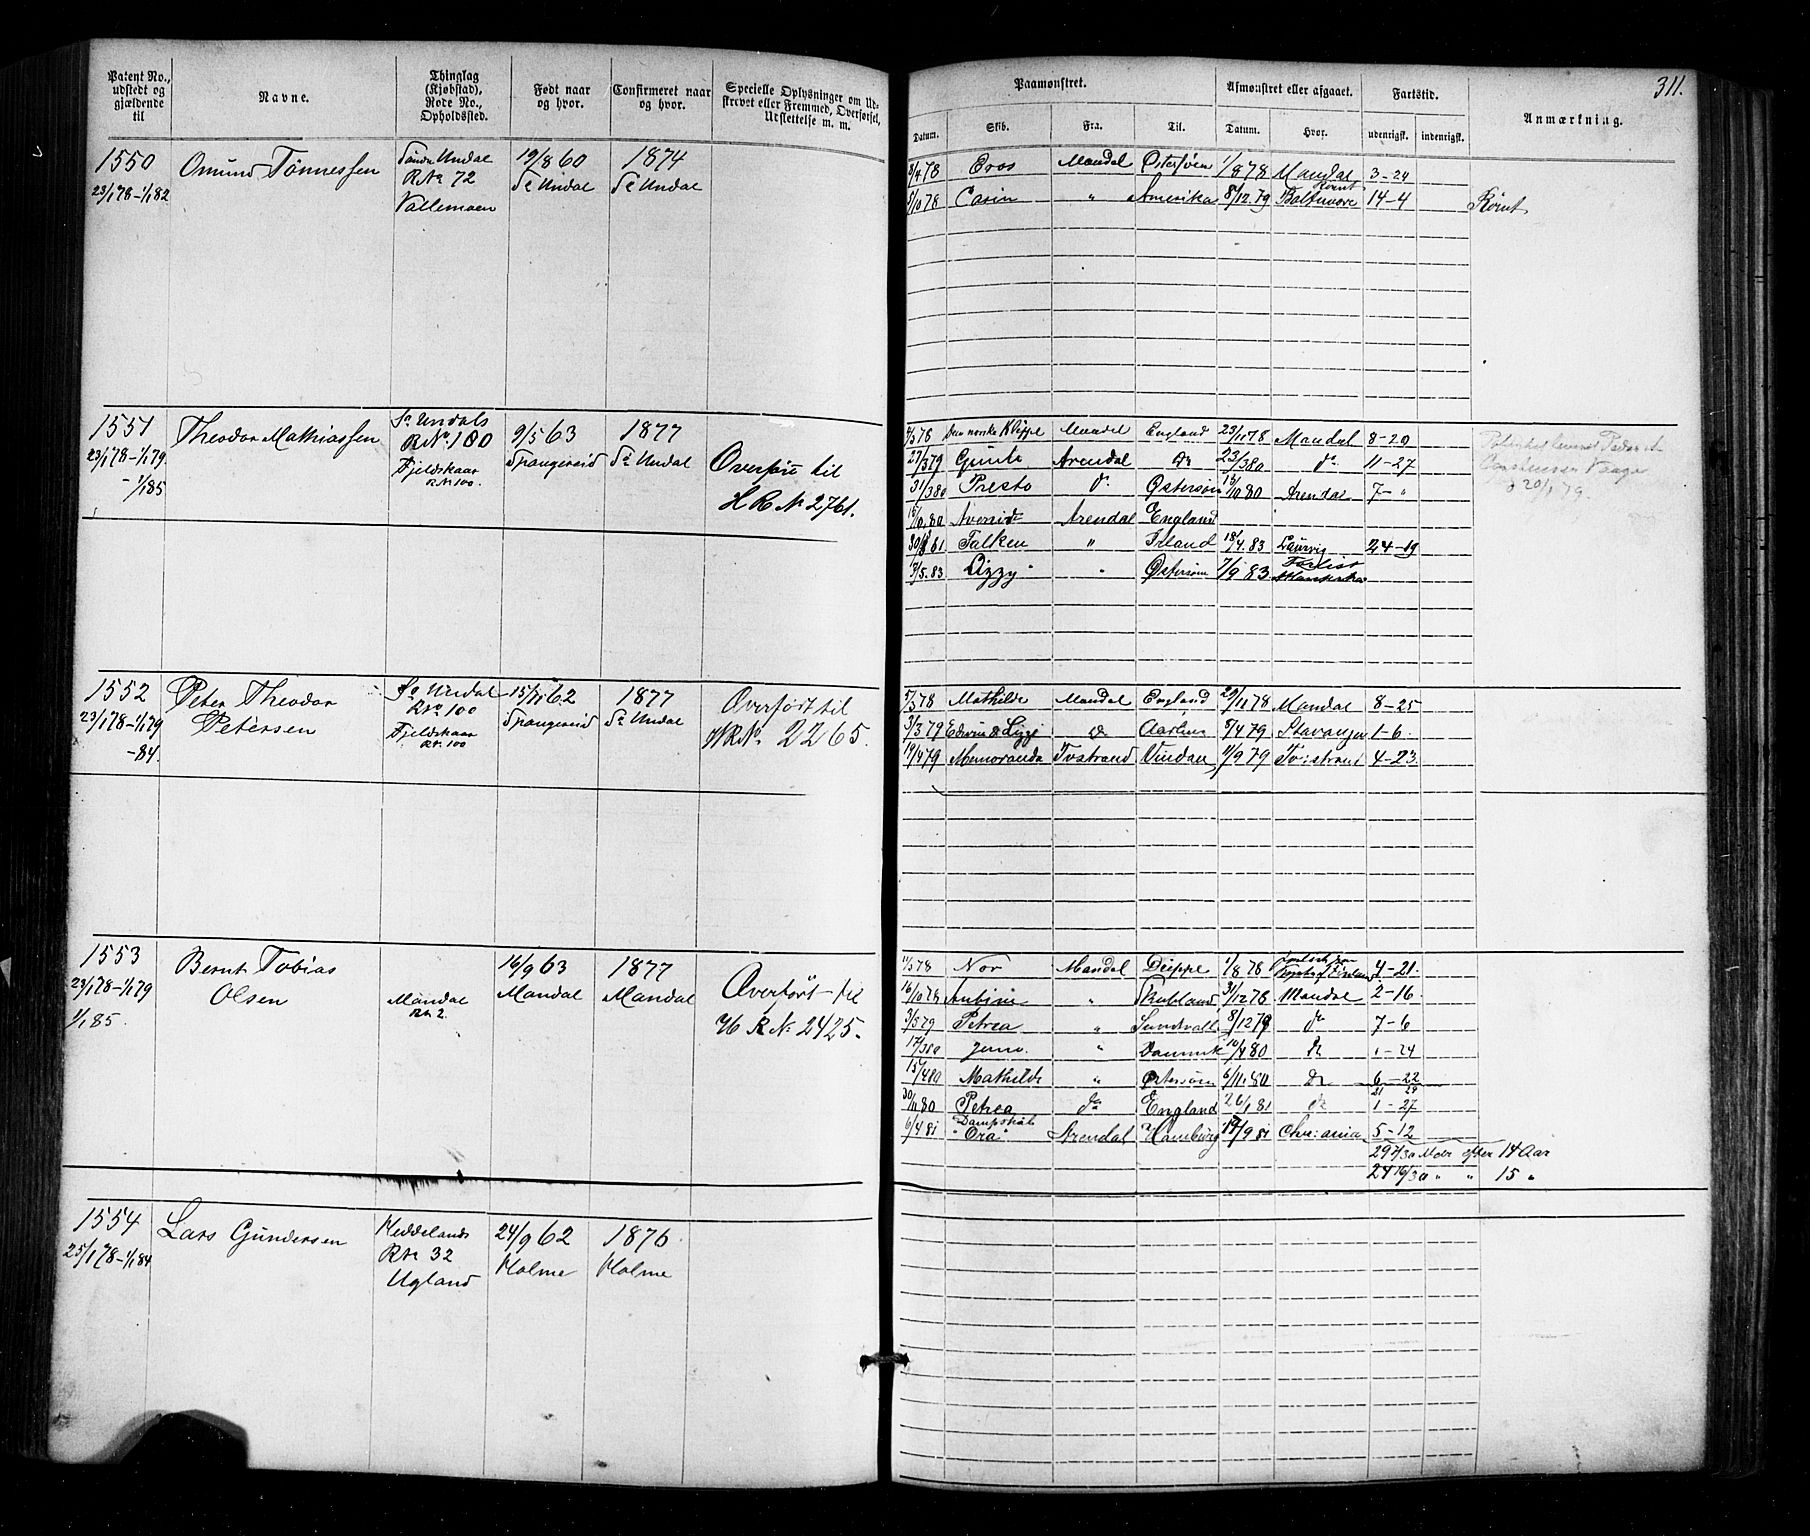 311.
Patent No., udstedt og gjældende til
Navne.
Thinglag (Kjøbstad), Rode No., Opholdssted.
Født naar og hvor.
Confirmeret naar og hvor.
Specielle Oplysninger om Udskrevet eller Fremmed, Overførsel, Udslettelse m. m.
Paamønstret.
Afmønstret eller afgaaet.
Fartstid.
Anmærkning.
Datum. Skib. Fra. Til. Datum. Hvor. udenrigsk. indenrigsk.
1550 Omund Tönnessen Söndre Undal 19/8 60 1874
23/1 78-1/1 82 RNo 72 Sr Undal Sr Undal
Vallemoen
5/4 78 Eros Mandal Østersøen 1/8 78 Mandal 3-24
5/10 78 Carin " Amerika 8/12 79 Baltimore Rømt 14-4 Rømt
1551 Theodor Mathiassen Sø Undals 9/5 63 1877
23/1 78-1/1 79 RNo 100 Spangereid Sø Undal Overført til
-1/1 85 Fjeldskaar HRNo 2761.
RNo 100.
Den norske Klippe Mandal England 23/11 78 Mandal 8-20
27/3 79 Arendal Do 23/3 80 do 11-27
31/3 80 Presto do Østersøen 15/10 80 Arendal 7-"
Arendal England
Falken " Irland 18/4 83 Laurvig 24-19
5.83 Lizzy " Østersøen 7/9 83 Forlist
20/1 79.
1552 Peter Theodor Sø Undal 15/11 62 1877 Overført til
23/1 78-1/1 79 Petersen RNo 100 Spangereid Sø Undal HRNo 2265.
-84. Fjeldskaar
RNo 100
5/3 78 Mathilde Mandal England 29/11 78 Mandal 8-25
3/3 79 Edwin & Lizzi do Aarhus 5/4 79 Stavanger 1-6
19/4 79 Memoranda Tvestrand 11/9 79 Tvistrand 4-23
1553 Bernt Tobias 16/9 63 1877 Overført til
23/1 78-1/1 79 Olsen Mandal Mandal Mandal H R No 2425.
1/1 85. RNo 2
11/3 78 Nor Mandal Dieppe 1/8 78 4-21
16/10 78 " 31/12 78 Mandal 2-16
3/5 79 Petrea " Sundsvall 8/12 79 do 7-6
17/3 80 " Danmark 10/4 80 do 1-24
15/4 80 Mathilde " Østersøen 6/11 80 do 6-22
21 29
30/11 80 Petrea do England 26/1 81 do 1-27
6/4 81 Dampskib "Ora" Arendal Hamburg 17/9 81 Chr:ania 5-12
29 7/30 Mdr efter 14 Aar
24 16/30 " " 15 "
1554 Lars Gundersen Heddelands 24/9 62 1876
25/1 78-1/1 84 RNo 32 Holme Holme
Ugland